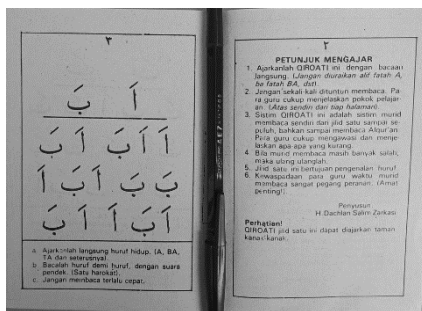 ٣
اَ بَ
اَ اَ بَ اَ بَ
بَ بَ اَ بَ اَ
اَ بَ اَ اَ بَ
a. Ajarkanlah langsung huruf hidup. (A, BA,
TA dan seterusnya).
b. Bacalah huruf demi huruf, dengan suara
pendek. (Satu harokat).
c. Jangan membaca terlalu cepat.
٢
PETUNJUK MENGAJAR
1. Ajarkanlah QIROATI ini dengan bacaan
langsung. (Jangan diuraikan alif fatah A,
ba fatah BA, dst).
2. Jangan sekali kali dituntun membaca. Pa-
ra guru cukup menjelaskan pokok pelajar-
an. (Atas sendiri dari tiap halaman).
3. Sistim QIROATI ini adalah sistim murid
membaca sendiri dari jilid satu sampai se-
puluh, bahkan sampai membaca Alqur'an.
Para guru cukup mengawasi dan menje-
laskan apa-apa yang kurang.
4. Bila murid membaca masih banyak salah,
maka ulang ulanglah.
5. Jilid satu ini bertujuan pengenalan huruf.
6. Kewaspadaan para guru waktu murid
membaca sangat pegang peranan. (Amat
penting!).
Penyusun
H. Dachlan Salim Zarkasi
Perhatian!
QIROATI jilid satu ini dapat diajarkan taman
kanak-kanak.